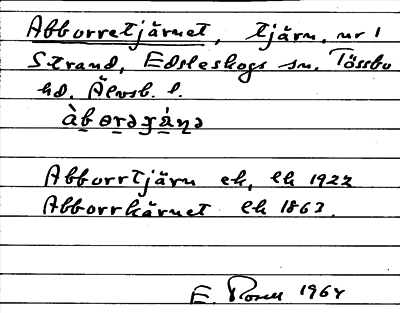 Abborretjärnet, tjärn, nr 1
Strand, Edsleskogs sn. Tössbo
hd. Älvsb. l.
Abborrtjärn ek, ek 1922
Abborrkärnet ek 1863.
E. Rosell 1964